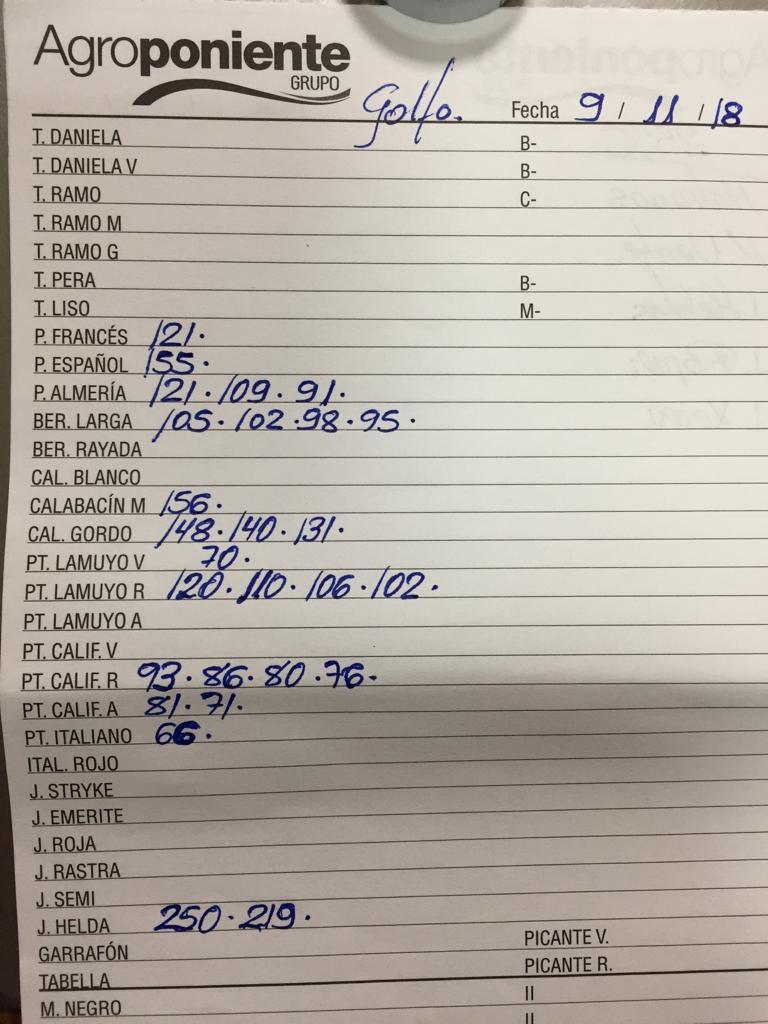 Agroponiente
GRUPO
Golfo. Fecha 9 / 11 / 18
T. DANIELA B-
T. DANIELA V B-
T. RAMO C-
T. RAMO M
T. RAMO G
T. PERA B-
T. LISO M-
P. FRANCÉS 121.
P. ESPAÑOL 155.
P. ALMERÍA 121. 109. 91.
BER. LARGA 105. 102. 98. 95.
BER. RAYADA
CAL. BLANCO
CALABACÍN M 156.
CAL. GORDO 148. 140. 131.
PT. LAMUYO V 70.
PT. LAMUYO R 120. 110. 106. 102.
PT. LAMUYO A
PT. CALIF. V
PT. CALIF. R 93. 86. 80. 76.
PT. CALIF. A 81. 71.
PT. ITALIANO 66.
ITAL. ROJO
J. STRYKE
J. EMERITE
J. ROJA
J. RASTRA
J. SEMI
J. HELDA 250. 219.
GARRAFÓN PICANTE V.
TABELLA PICANTE R.
M. NEGRO II
II